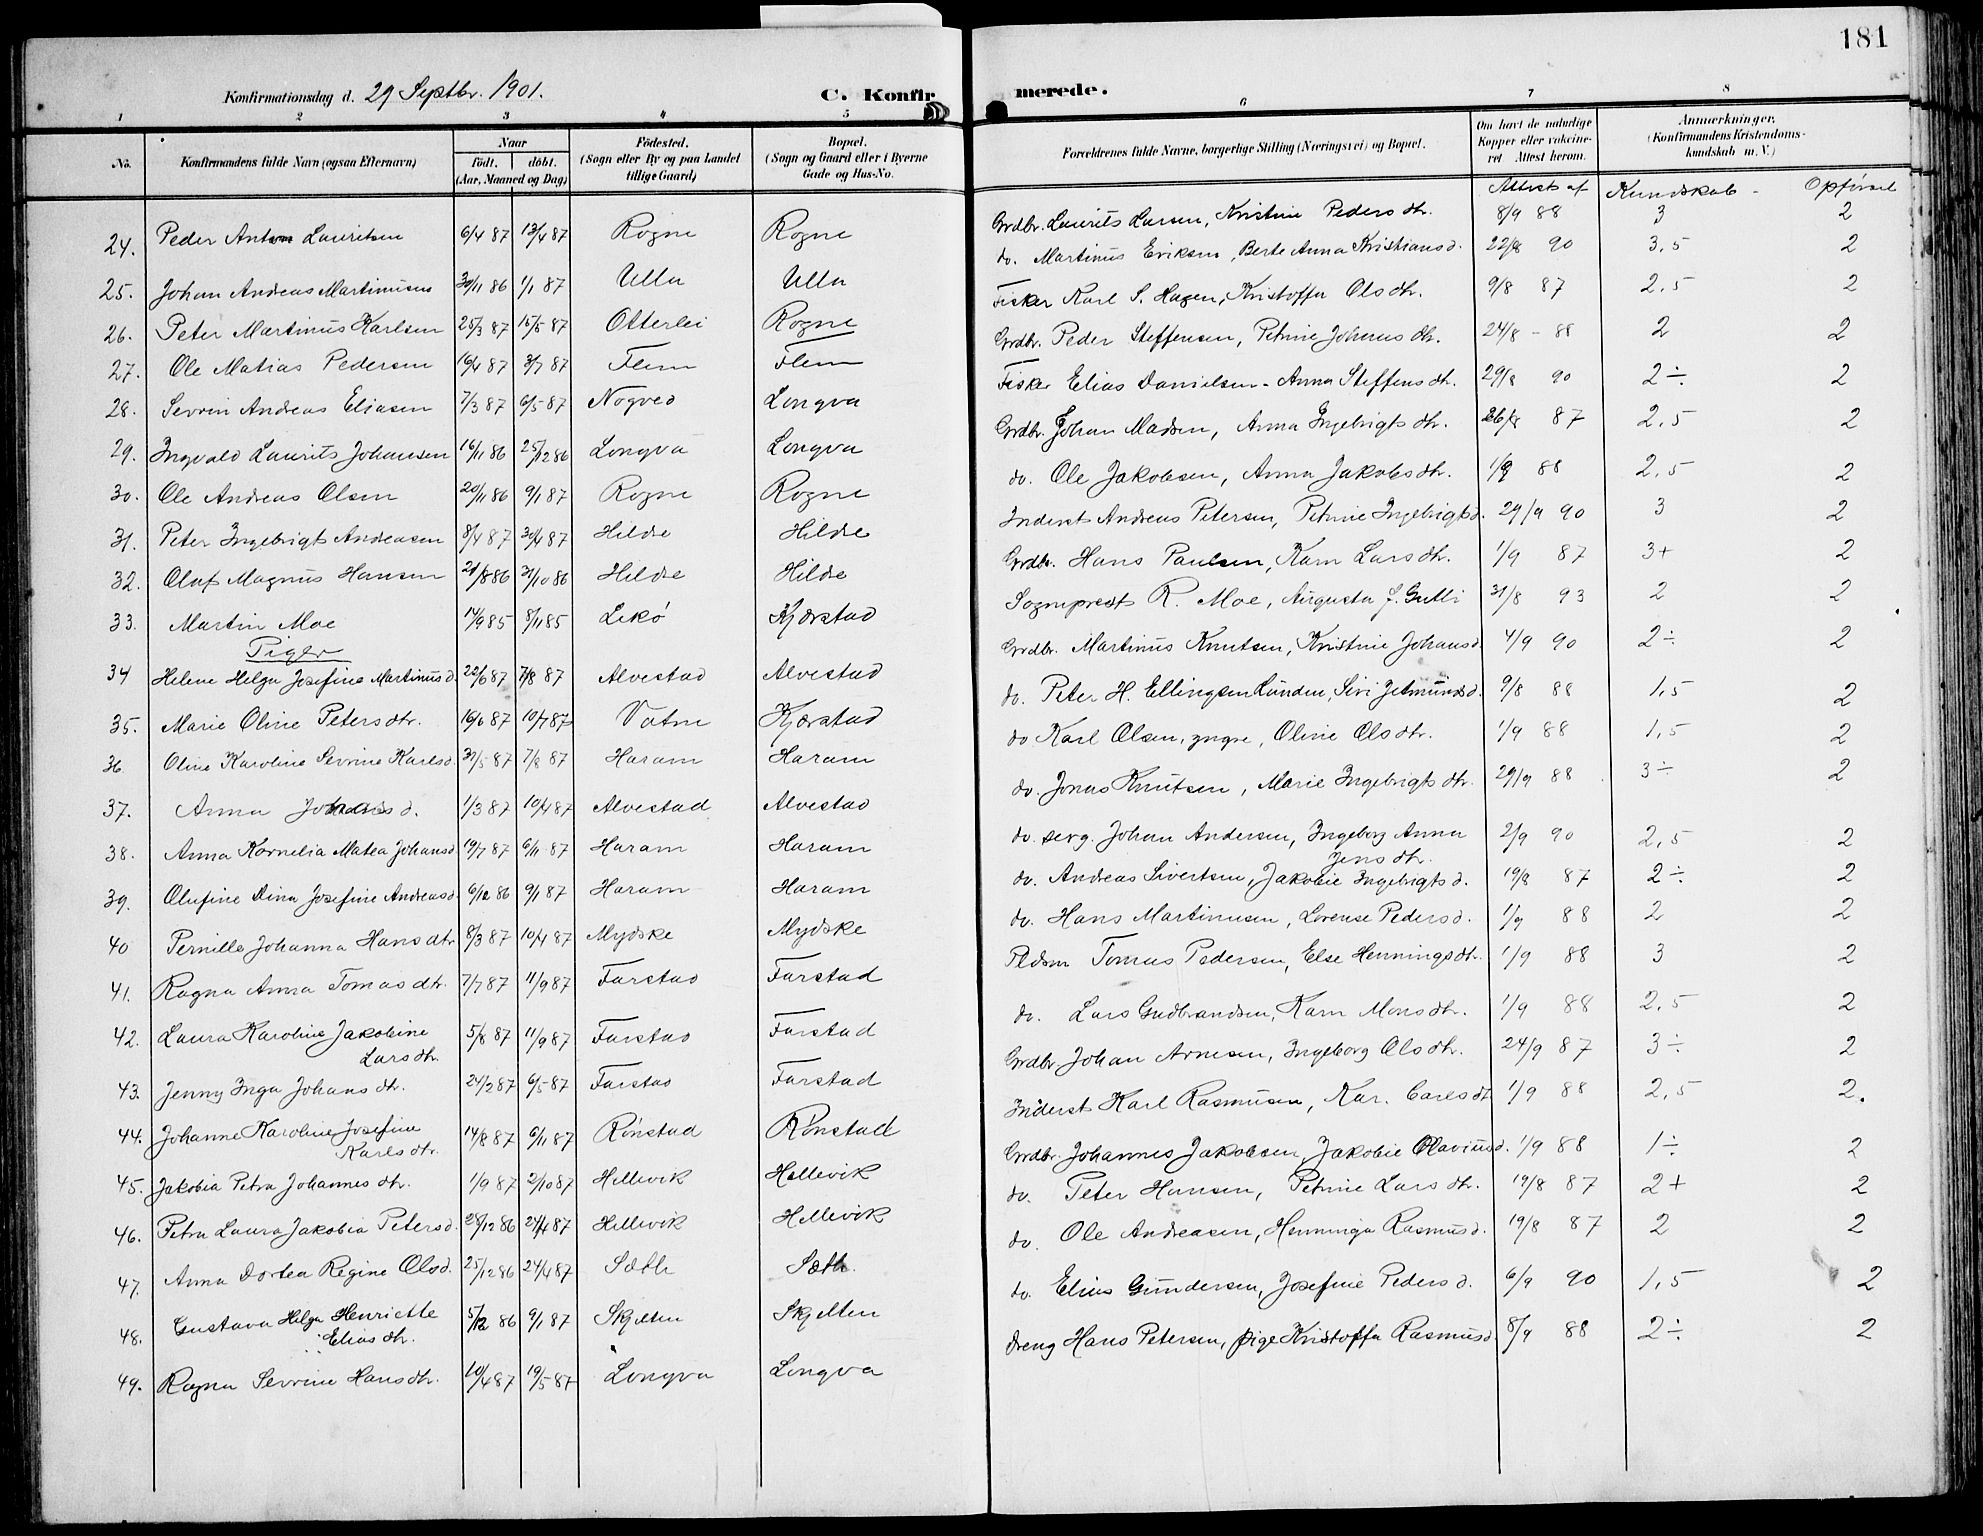 181
Konfirmationsdag d. 29 Septbr. 1901.
C. Konfir
merede.
1 2 3 4 5
6 7 8
No.
Konfirmandens fulde Navn (ogsaa Efternavn)
Naar
født. døbt.
(Aar, Maaned og Dag)
Fødested.
(Sogn eller By og paa Landet
tillige Gaard)
Bopæl.
(Sogn og Gaard eller i Byerne
Gade og Hus-No.
Forældrenes fulde Navne, borgerlige Stilling (Næringsvei) og Bopæl.
Om havt de naturlige
Kopper eller vakcine-
ret Attest herom.
Anmærkninger.
(Konfirmandens Kristendoms-
kundskab m. V.)
Attest af Kundskab - Opførsel
24. Peder Anton Lauritsen 6/4 87 13/4 87 Rogne Rogne
25. Johan Andreas Martinusen 30/11 86 1/1 87 Ulla Ulla
26. Peter Martinus Karlsen 25/3 87 15/5 87 Otterlei Rogne
27. Ole Matias Pedersen 16/4 87 3/7 87 Flem Flem
28. Sevrin Andreas Eliasen 7/3 87 6/5 87 Nogved Longva
29. Ingvald Laurits Johansen 16/11 86 25/12 86 Longva Longva
30. Ole Andreas Olsen 20/11 86 9/1 87 Rogne Rogne
31. Peter Ingebrigt Andreasen 8/4 87 30/4 87 Hildre Hildre
32. Oluf Magnus Hansen 21/8 86 31/10 86 Hildre Hildre
33. Martin Moe 14/9 85 8/11 85 Lekø Kjærstad
Piger
34 Helene Helga Josefine Martinusd. 22/6 87 7/8 87 Alvestad Alvestad
35. Marie Oline Petersdtr. 16/6 87 10/7 87 Vatne Kjærstad
36. Oline Karoline Sevrine Karlsd. 31/5 87 7/8 87 Haram Haram
37. Anna Johansd. 1/3 87 10/4 87 Alvestad Alvestad
38. Anna Kornelia Matea Johansd. 19/7 87 6/11 87 Haram Haram
39. Olufine Dina Josefine Andreasd. 6/12 86 9/1 87 Haram Haram
40 Pernille Johanna Hansdtr. 8/3 87 10/4 87 Mydske Mydske
41. Ragna Anna Tomasdtr. 7/7 87 11/9 87 Farstad Farstad
42. Laura Karoline Jakobine
Larsdtr. 5/8 87 11/9 87 Farstad Farstad
43. Jenny Inga Johansdtr. 24/2 87 6/5 87 Farstad Farstad
44. Johanne Karoline Josefine
Karlsdtr. 14/8 87 6/11 87 Rønstad Rønstad
45. Jakobia Petra Johannesdtr. 1/9 87 2/10 87 Hellevik Hellevik
46. Petra Laura Jakobia Petersd. 28/12 86 24/4 87 Hellevik Hellevik
47. Anna Dortea Regine Olsd. 25/12 86 24/4 87 Sætre Sætre
48. Gustava Helga Henriette
Eliasdtr. 5/12 86 9/1 87 Skjelten Skjelten
49. Ragna Sevrine Hansdtr. 10/4 87 19/5 87 Longva Longva
Grdbr. Laurits Larsen, Kristine Pedersdtr. 8/9 88 3 2
do. Martinus Eriksen, Berte Anna Kristiansd. 22/8 90 3,5 2
Fisker Karl S. Hagen, Kristoffa Olsdtr. 9/8 87 2,5 2
Grdbr. Peder Steffensen, Petrine Johansdtr. 24/8 - 88 2 2
Fisker Elias Danielsen - Anna Steffensdtr. 29/8 90 2÷ 2
Grdbr. Johan Madsen, Anna Ingebrigtsdtr. 26/8 87 2,5 2
do. Ole Jakobsen, Anna Jakobsdtr. 1/9 88 2,5 2
Inderst Andreas Petersen, Petrine Ingebrigtsd. 29/9 90 3 2
Grdbr. Hans Paulsen, Karn Larsdtr. 1/9 87 3+ 2
Sogneprest R. Moe, Augusta f. Gulli 31/8 93 2 2
Grdbr. Martinus Knutsen, Kristine Johansd. 4/9 90 2÷ 2
do. Peter H. Ellingsen Lunden, Sivi Jetmundsd. 9/8 88 1,5 2
do Karl Olsen, yngre, Oline Olsdtr. 1/9 88 1,5 2
do. Jonas Knutsen, Marie Ingebrigtsdtr. 29/9 88 3÷ 2
do. serg. Johan Andersen, Ingeborg Anna
Jensdtr. 2/9 90 2,5 2
do. Andreas Sivertsen, Jakobie Ingebrigtsd. 19/8 87 2÷ 2
do. Hans Martinusen, Lorense Pedersd. 1/9 88 2 2
Pldsm Tomas Pedersen, Else Henningsdtr. 1/9 88 3 2
do. Lars Gudbrandsen, Karn Monsdtr. 1/9 88 2,5 2
Grdbr. Johan Arnesen, Ingeborg Olsdtr. 24/9 87 3÷ 2
Inderst Karl Rasmusen, Kar. Carlsdt 1/9 88 2,5 2.
Grdbr. Johannes Jakobsen, Jakobie Olaviusd. 1/9 88 1÷ 2
do. Peter Hansen, Petrine Larsdtr. 19/8 87 2+ 2
do. Ole Andreasen, Henninga Rasmusd. 19/8 87 2 2
do. Elias Gundersen, Josefine Pedersd. 6/9 90 1,5 2
Dreng Hans Petersen, pige Kristoffa Rasmusd. 8/9 88 2÷ 2